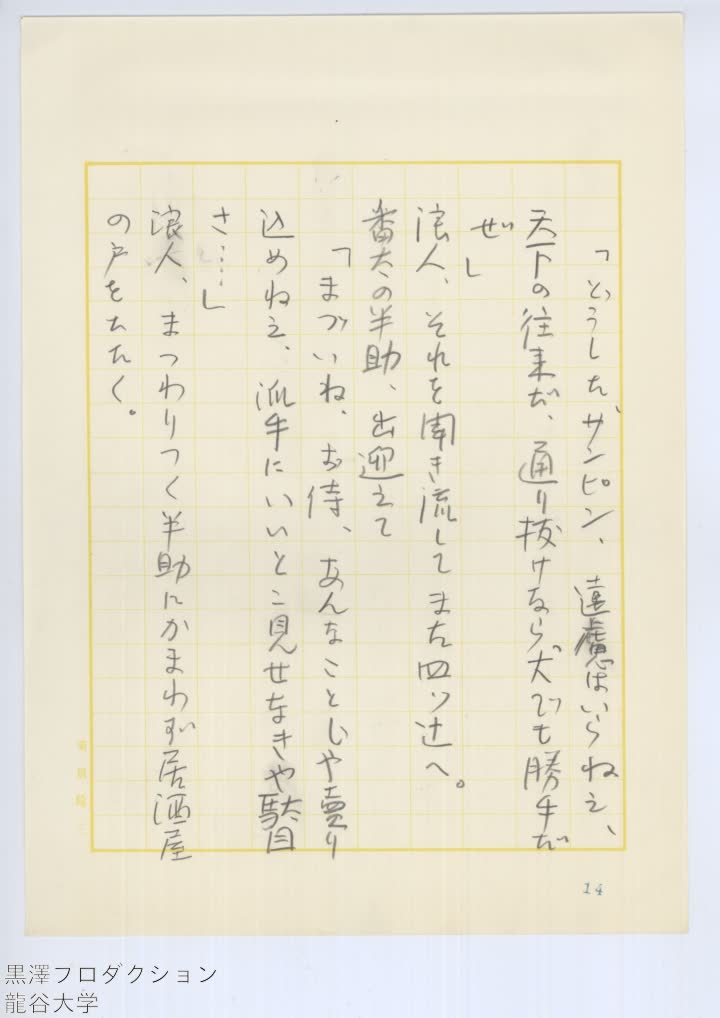 「どうした、サンピン、遠慮はいらねえ、
天下の往来だ、通り抜けなら犬でも勝手だ
ぜ」
浪人、それを聞き流してまた四ツ辻へ。
番太の半助、出迎えて
「まづいね、お侍、あんなことじや売り
込めねえ、派手にいいとこ見せなきや駄目
さ……」
浪人、まつわりつく半助にかまわず居酒屋
の戸をたたく。
14
黒澤フロダクション
龍谷大学